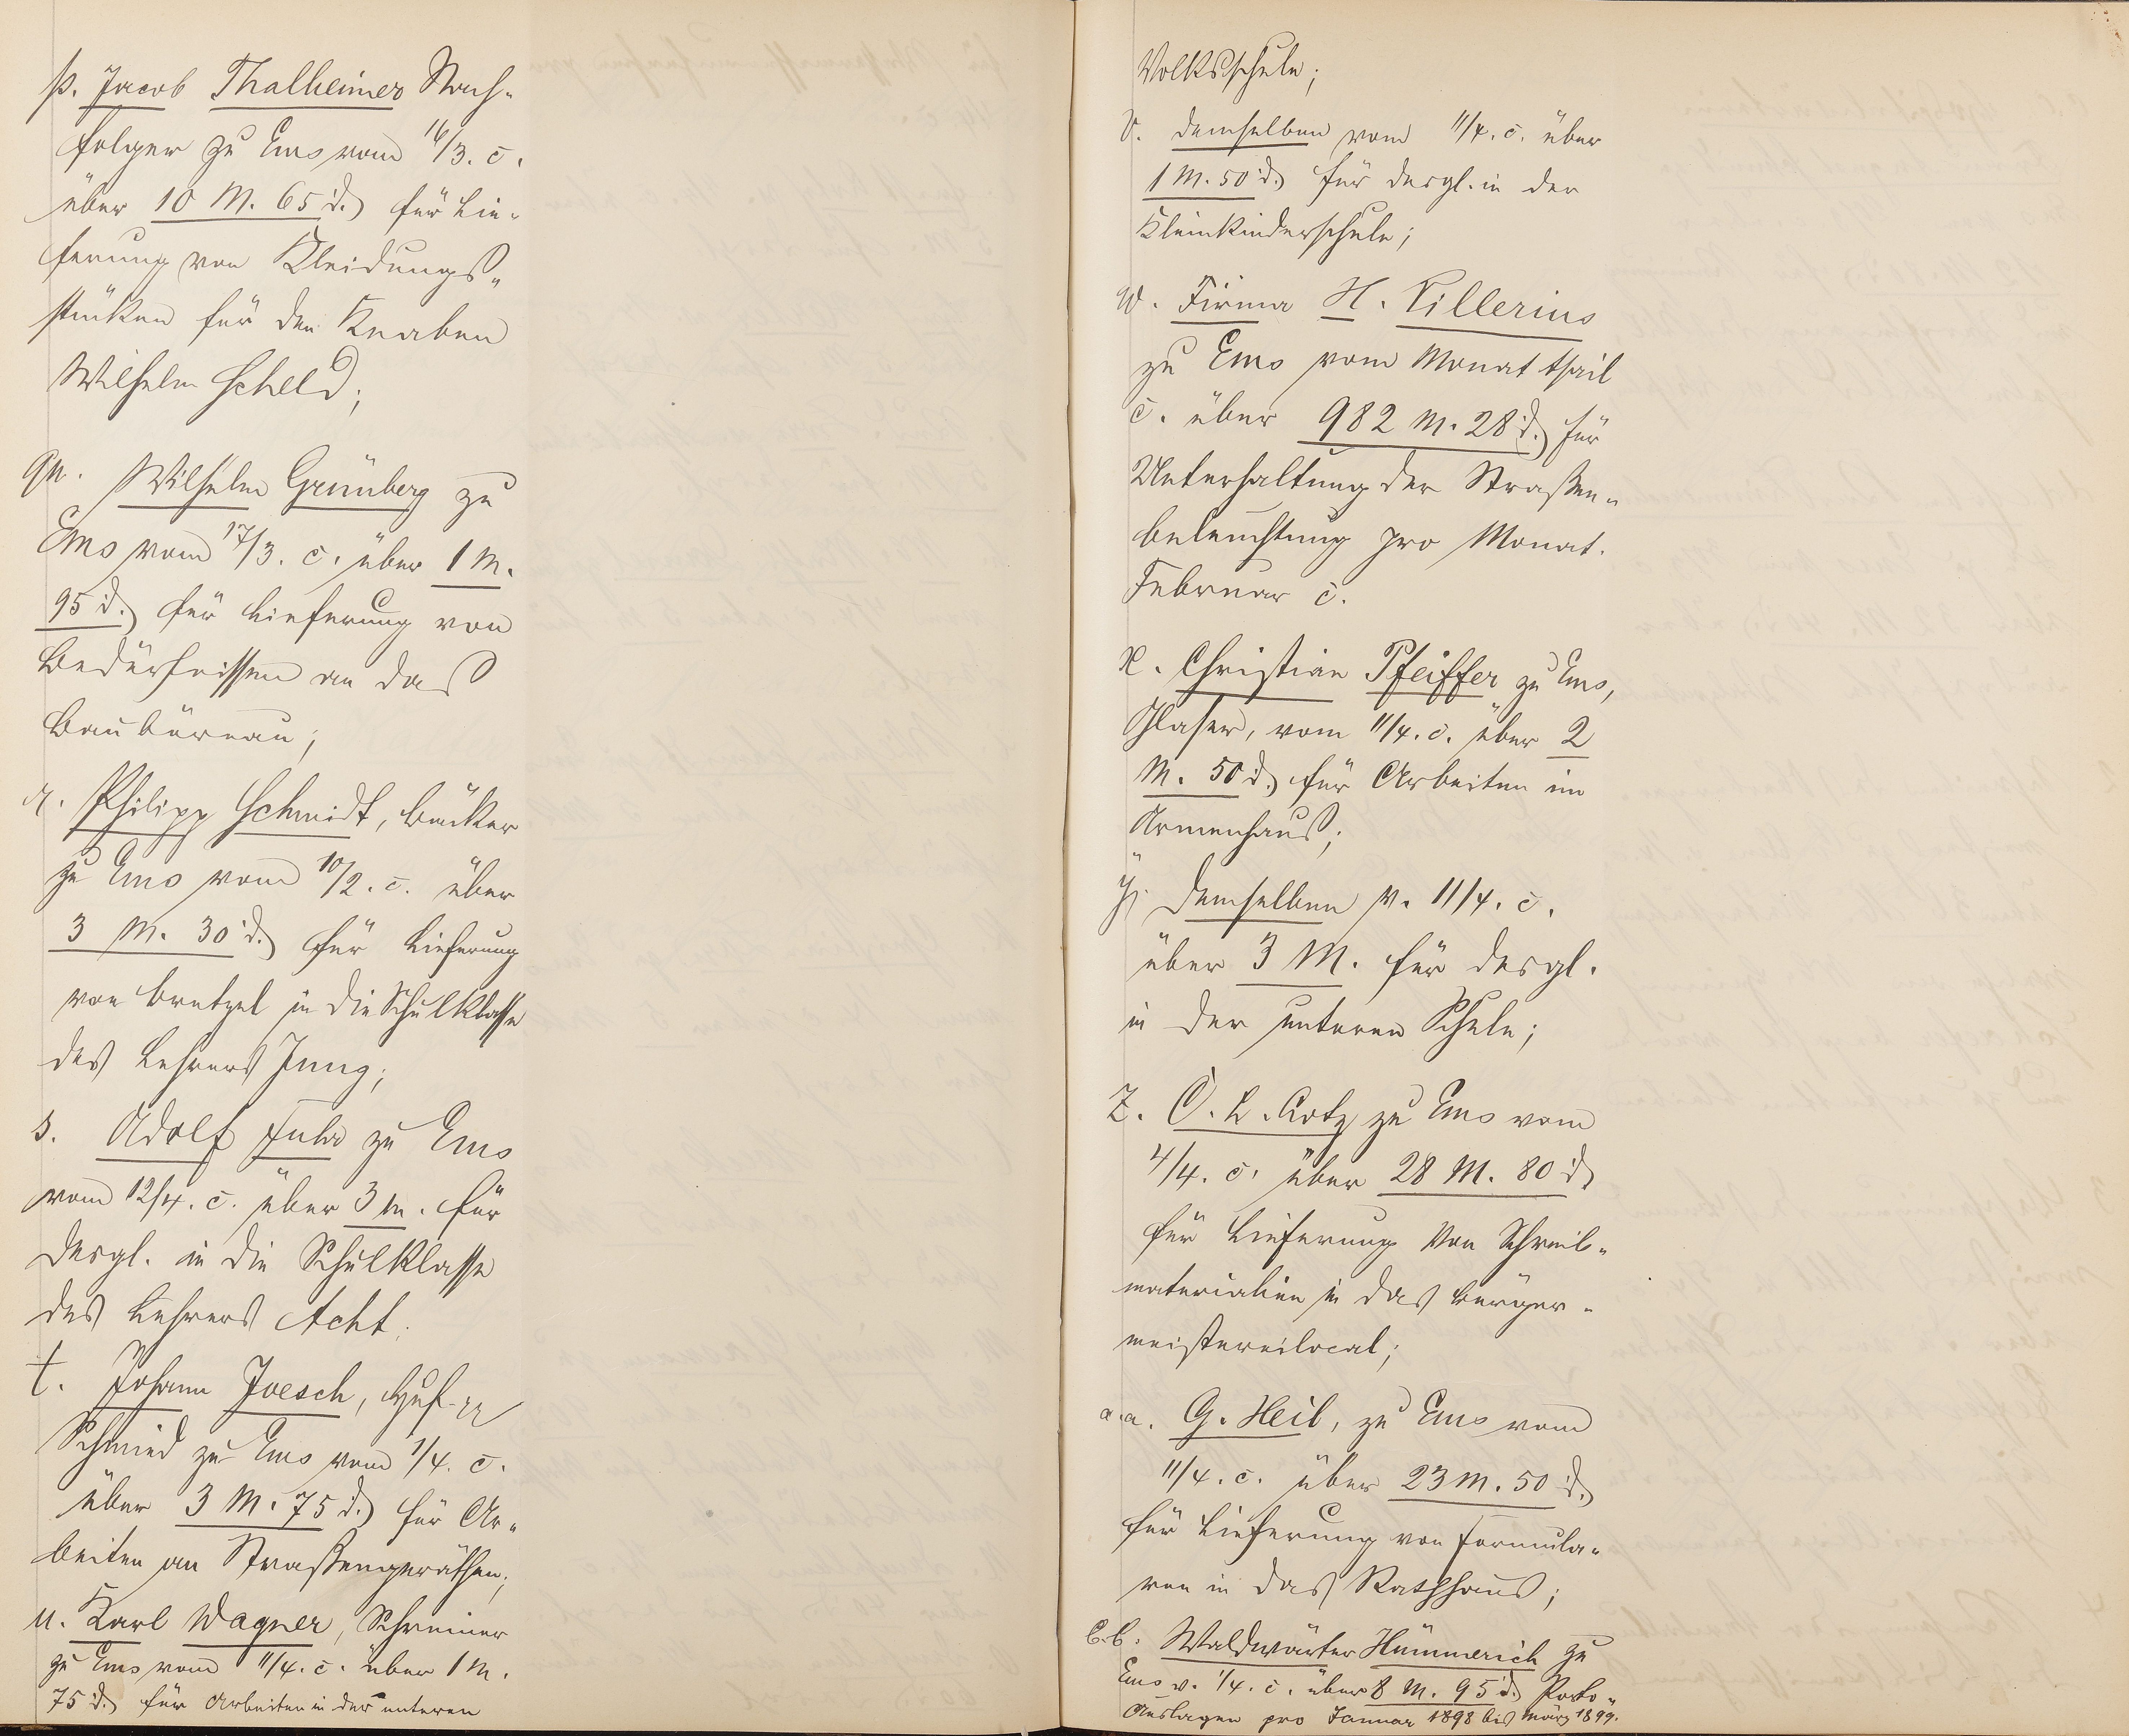 p. Jacob Thalheimer Nach-
folger zu Ems vom 16/3. c.
über 10 M. 65 d. für Lie-
ferung von Kleidungs-
stücken für den Knaben
Wilhelm Scheld;
qu. Wilhelm Grünberg zu
Ems vom 17/3. c. über 1 M.
95 d. für Lieferung von
Bedürfnissen an das
Baubüreau;
r. Philipp Schmidt, Bäcker
zu Ems vom 10/2. c. über
3 M. 30 d. für Lieferung
von Bretzel in die Schulklasse
des Lehrers Jung;
s. Adolf Fuhr zu Ems
vom 12/4. c. über 3 M. für
desgl. in die Schulklasse
des Lehrers Acht;
t. Johann Joesch, Huf-
Schmied zu Ems vom 1/4. c.
über 3 M. 75 d. für Ar-
beiten an Straßengeräthen;
u. Karl Wagner, Schreiner
zu Ems vom 11/4. c. über 1 M.
75 d. für Arbeiten in der unteren
Volksschule;
v. demselben vom 11/4. c. über
1 M. 50 d. für desgl. in der
Kleinkinderschule;
w. Firma H. Tillerius
zu Ems vom Monat
c. über 982 M. 28 d. für
Unterhaltung der Straßen-
beleuchtung pro Monat.
Februar c.
x. Christian Pfeiffer zu Ems,
Glaser, vom 11/4. c. über 2
M. 50 d. für Arbeiten im
Armenhaus;
y. demselben v. 11/4. c.
über 3 M. für desgl.
in der unteren Schule;
z. O. L. zu Ems vom
4/4. c. über 28 M. 80 d.
für Lieferung von Schreib-
materialien in das Bürger-
meistereilocal;
a.a. G. Heil, zu Ems vom
11/4. c. über 23 M. 50 d.
für Lieferung von Formula-
ren in das Rathhaus;
b.b. Waldwärter Hümmerich zu
Ems v. 1/4. c. über 8 M. 95 d. Porto-
Auslagen pro Januar 1898 bis März 1899.